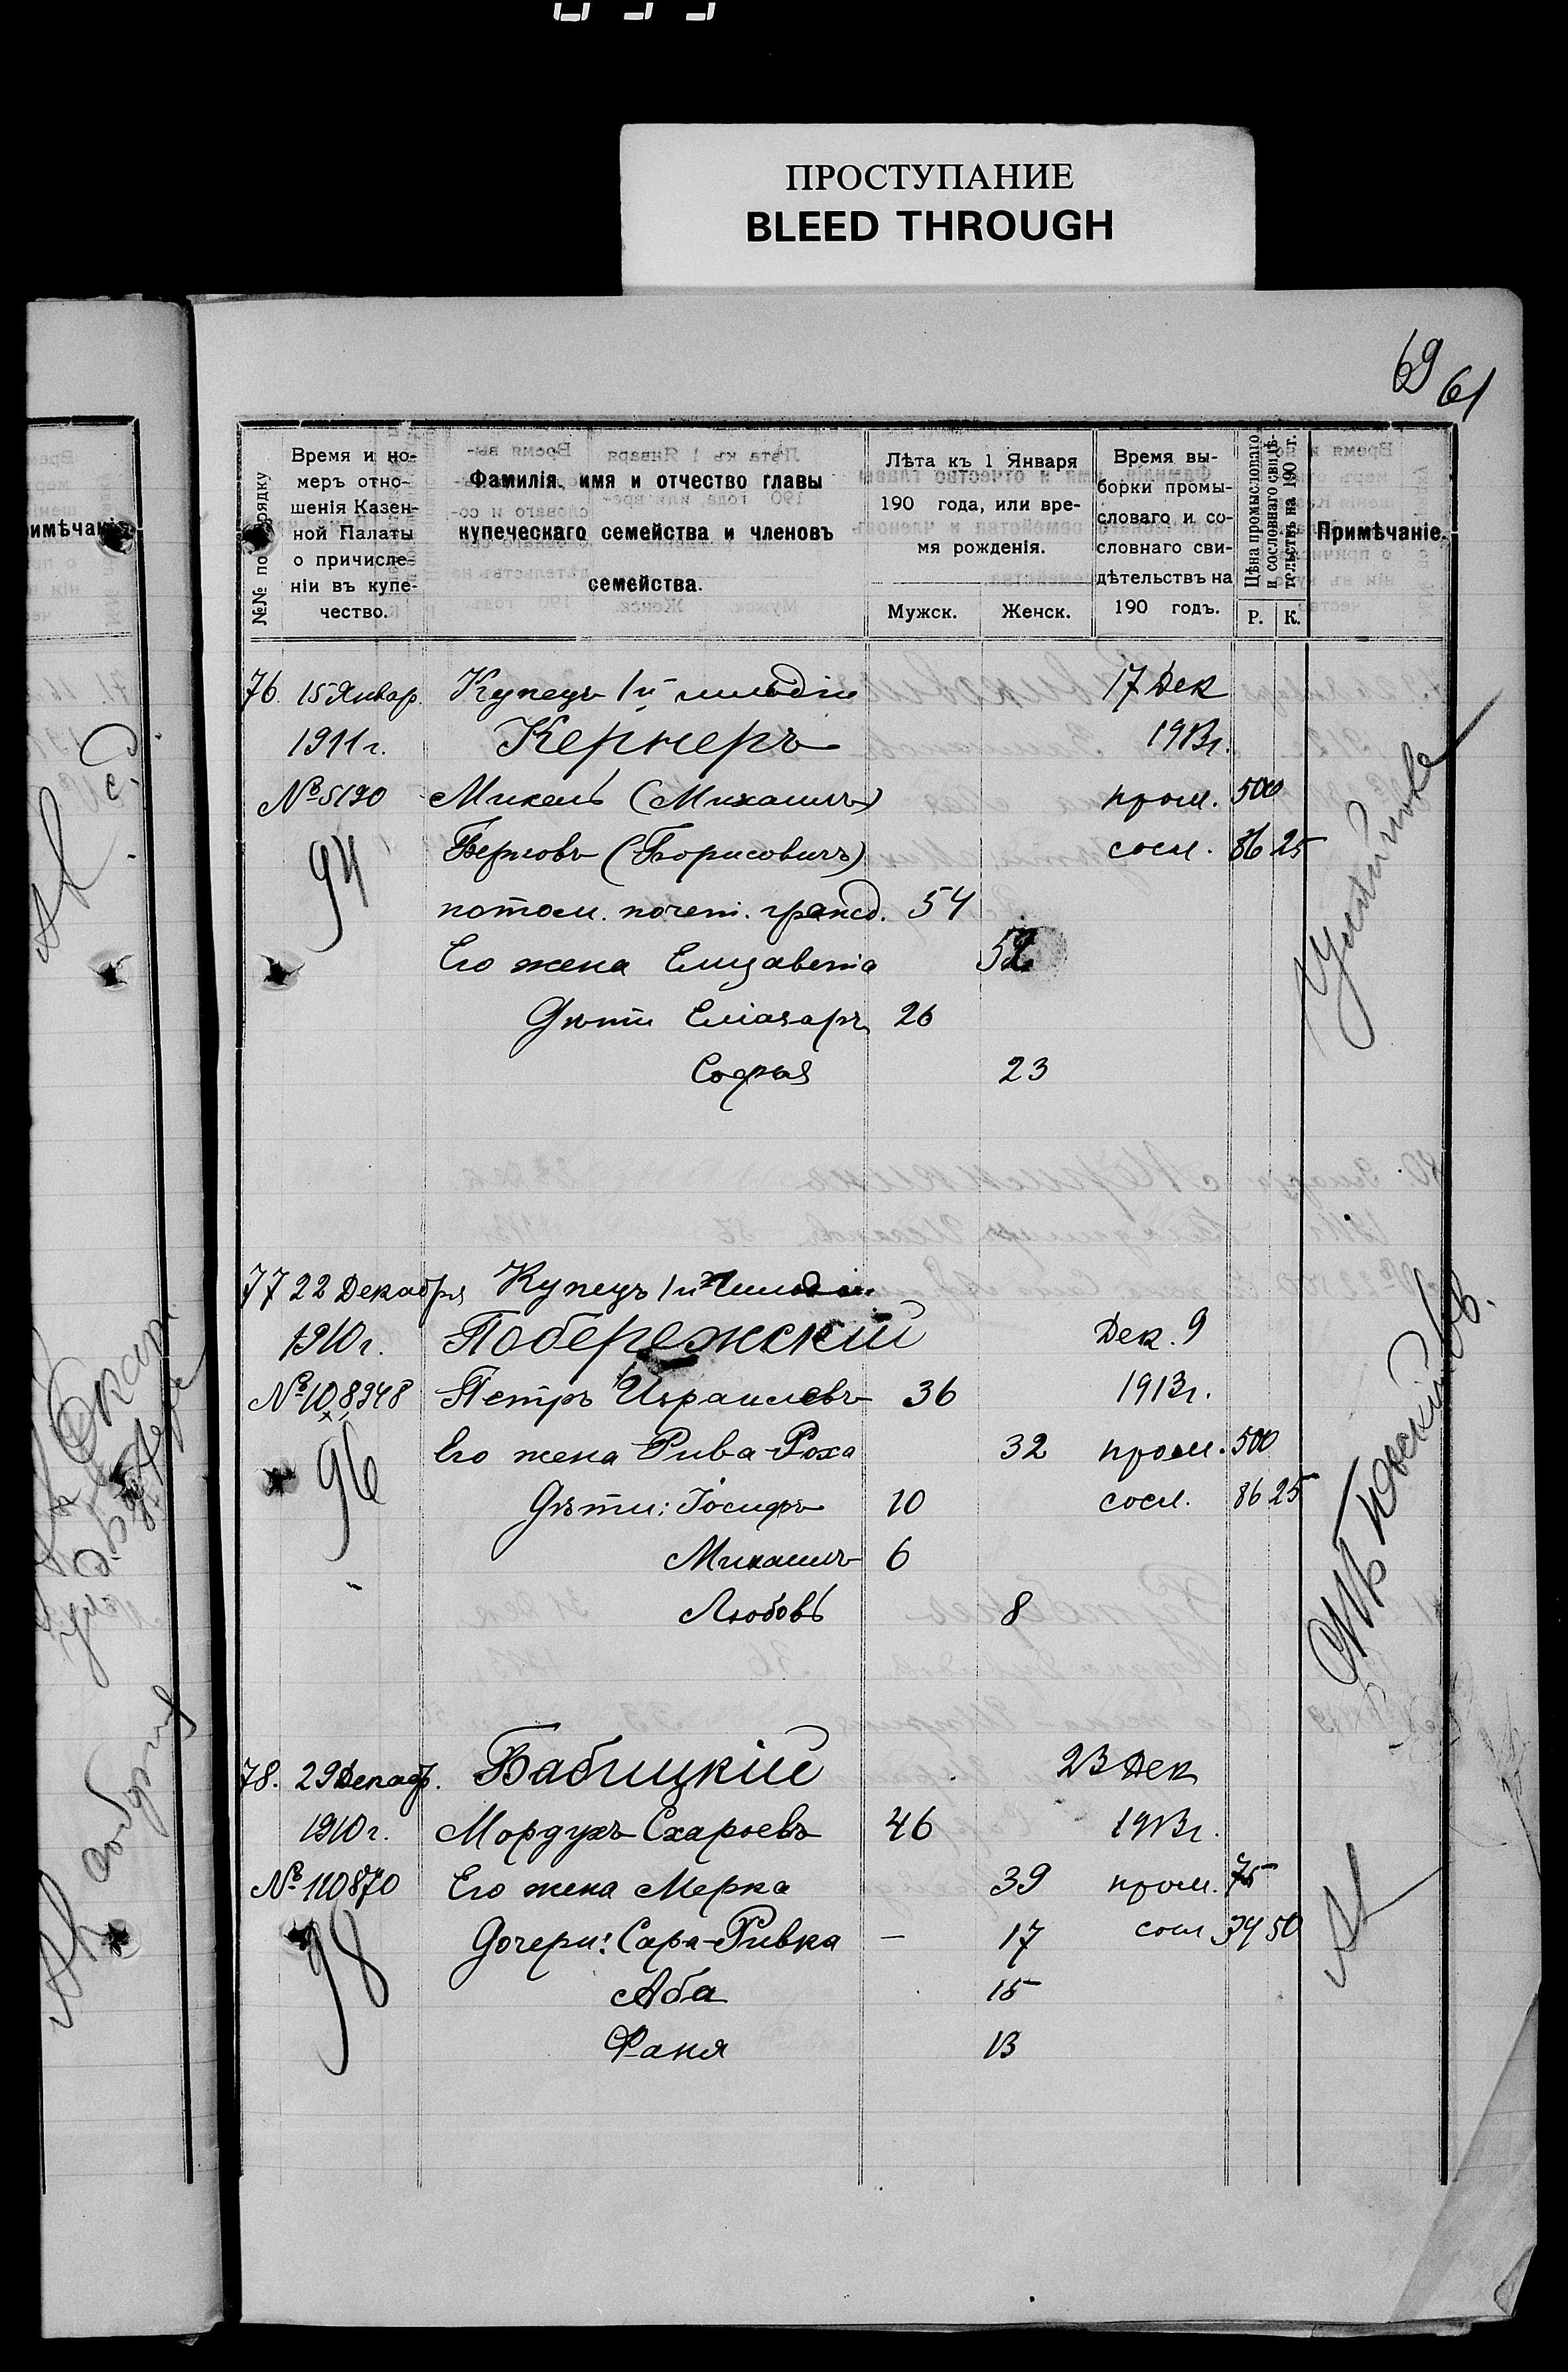 ПРОСТУПАНИЕ
BLEED THROUGH
69
61
№№ по порядку
Время и но-
меръ отно-
шенія Казен-
ной Палаты
о причисле-
ніи въ купе-
чество.
Фамилія, имя и отчество главы
купеческаго семейства и членовъ
семейства.
Лѣта къ 1 Января
190 года, или вре-
мя рожденія.
Мужск. Женск.
Время вы-
борки промы-
словаго и со-
словнаго сви-
дѣтельствъ на
190 годъ.
Цѣна промысловаго
и сословнаго свидѣ-
тельствъ на 190 г.
Р. К.
Примѣчаніе.
76. 15 Январ. Купецъ 1й гильдіи 17 Дек
1911 г. Кернеръ 1913 г.
№ 5190 Михель (Михаилъ) пром. 500
94 Берковъ (Борисовичъ) сосл. 86 25
потом. почет. гражд. 54
Его жена Елизавета 52
Дѣти Еліазаръ 26
Софья 23
77 22 Декабря Купецъ 1й гильдіи
1910 г. Побережскій Дек. 9
№ 108948 Петръ Израилевъ 36 1913 г.
96 Его жена Рива-Роха 32 пром. 500
Дѣти: Іосифъ 10 сосл. 86 25
Михаилъ 6
Любовь 8
78. 29 Декабр. Бабицкій 23 Дек
1910 г. Мордухъ Схарьевъ 46 1913 г.
№ 110870 Его жена Мерка 39 пром. 75
98 Дочери: Сара-Ривка — 17 сосл 34 50
Аба 15
Фаня 13